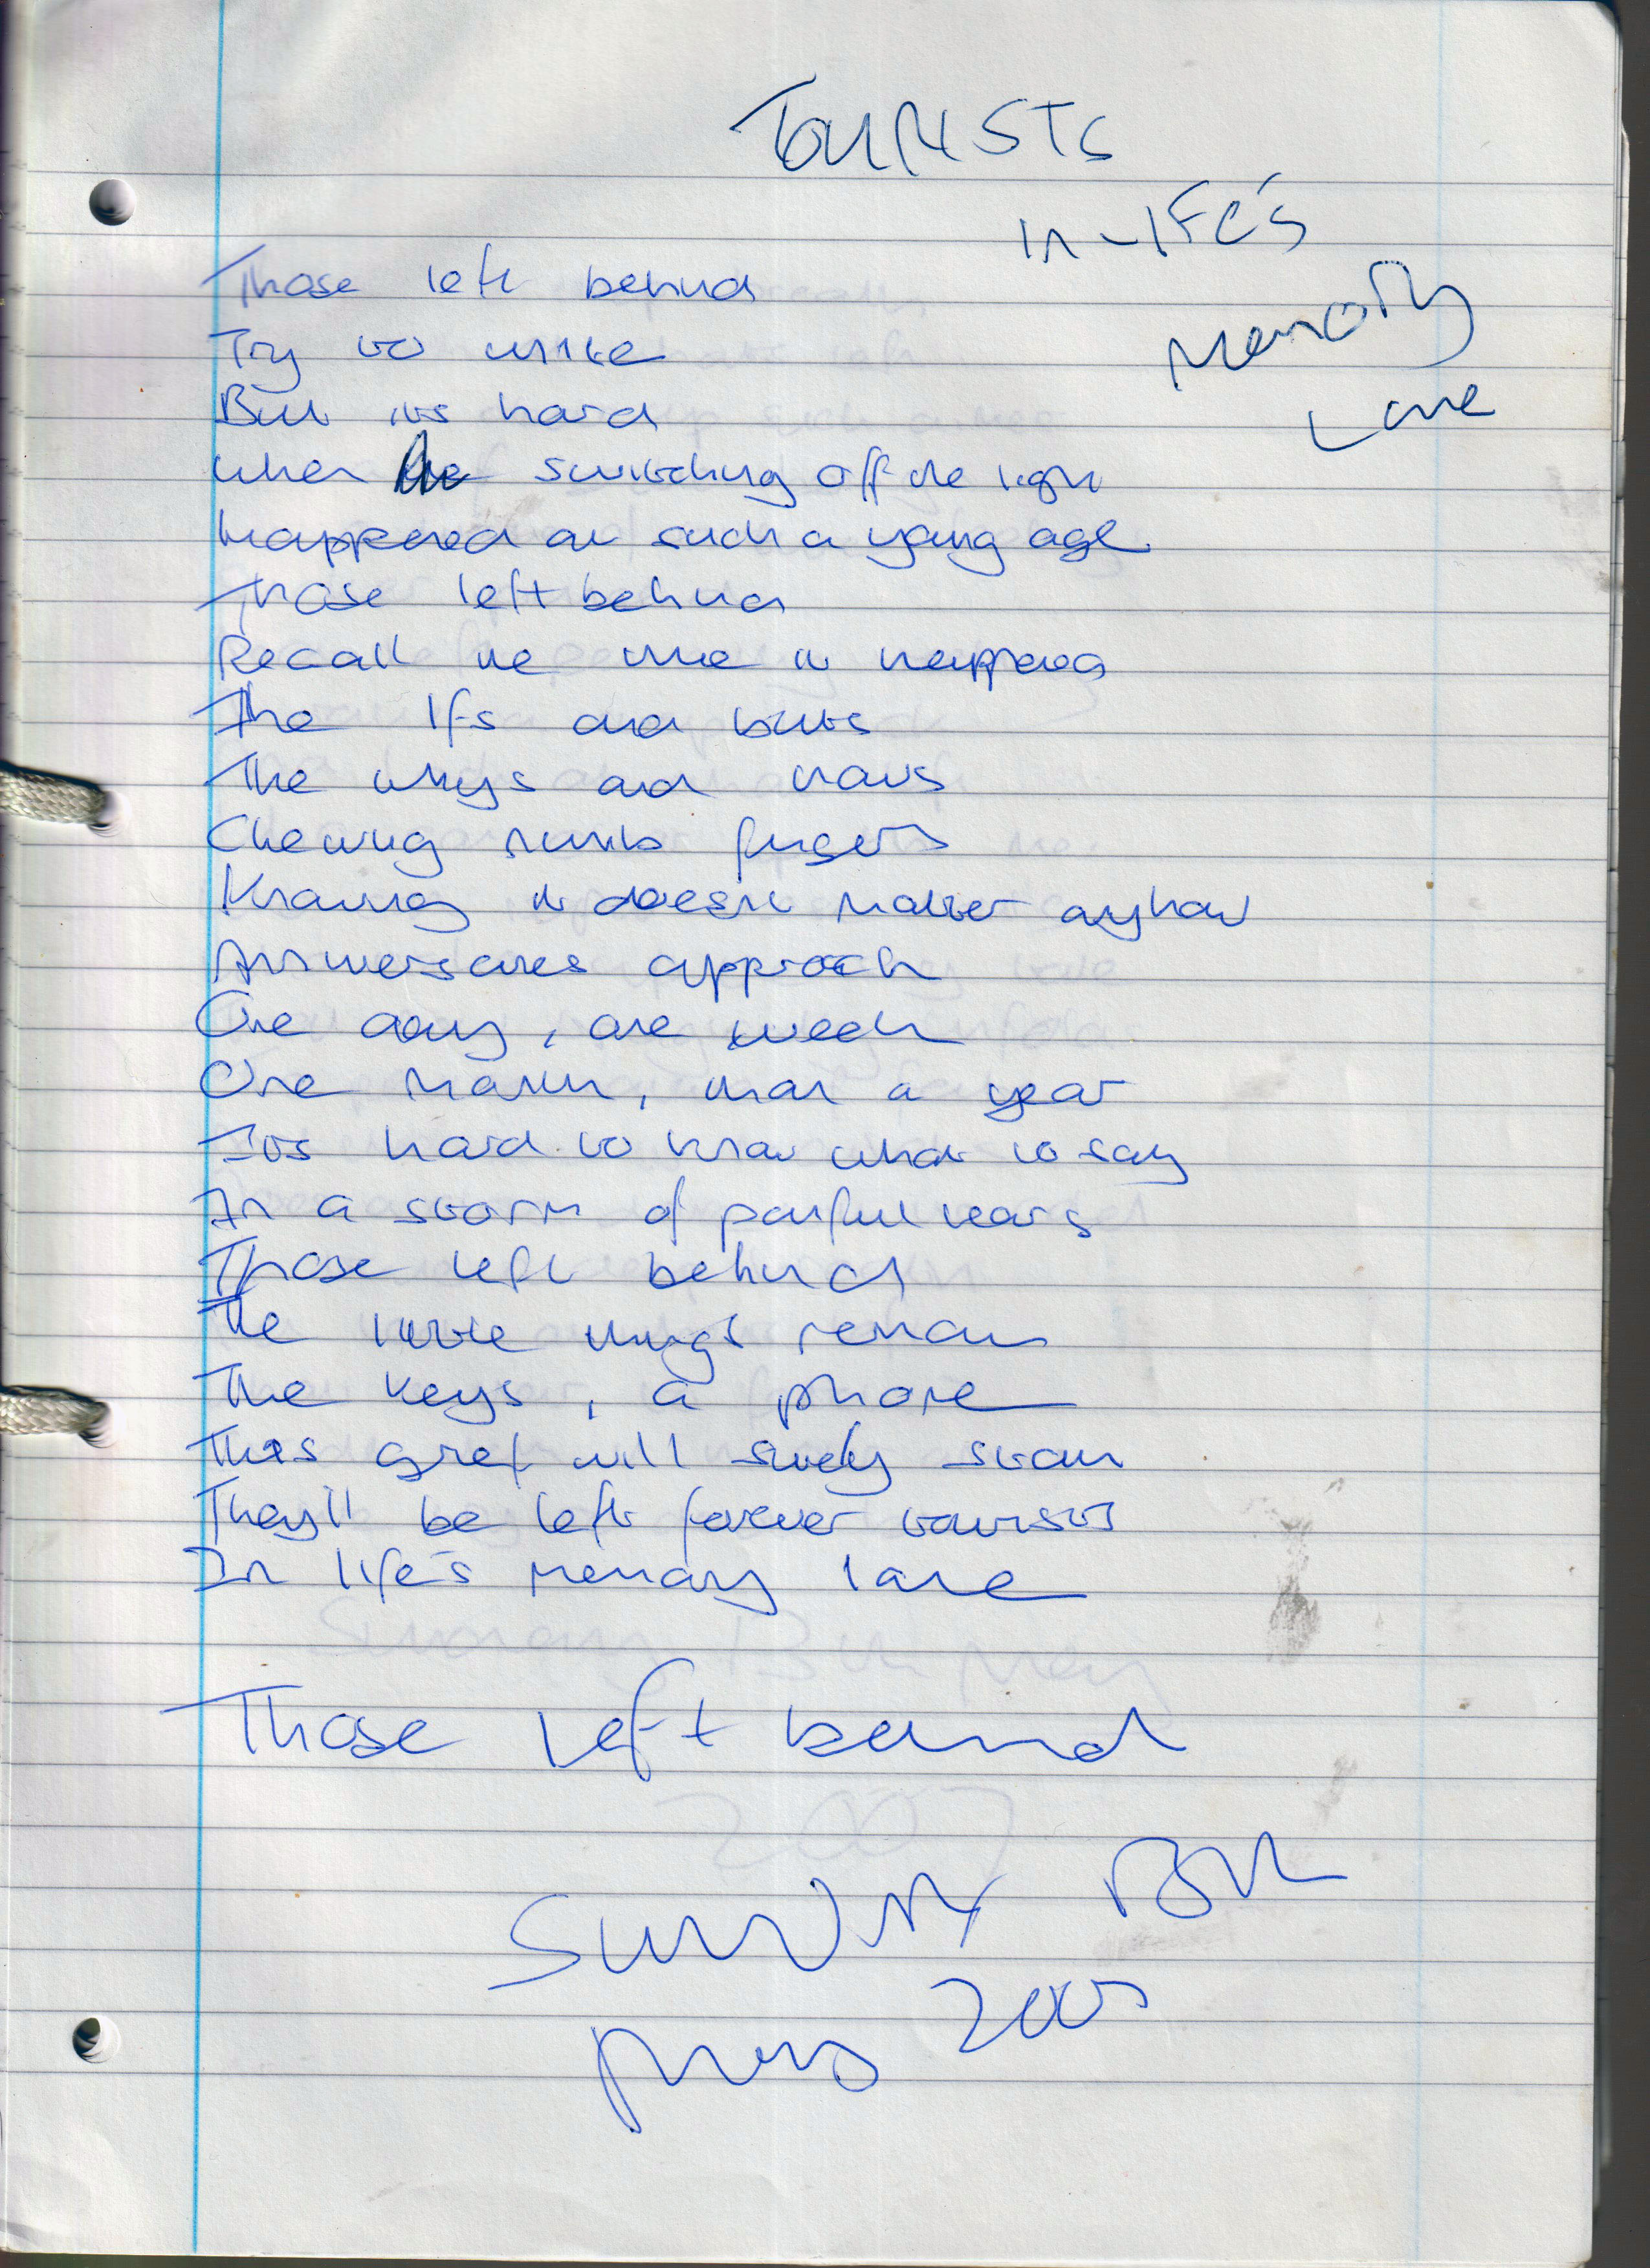 TOURISTS
IN LIFE'S
MEMORY
LANE
Those left behind
Try to write
But its hard
When switching off the light
Happened at such a young age
Those left behind
Recall the time it happened
The Ifs and buts
The whys and hows
Chewing numb fingers
Knowing it doesn't matter anyhow
Anniversaries approach
One day, one week
One month, than a year
Its hard to know what to say
In a storm of painful tears
Those left behind
The little things remain
The keys, a phone
This grief will surely stain
They'll be left forever tourists
In life's memory lane
Those Left behind
SUNDAY 13th
2007